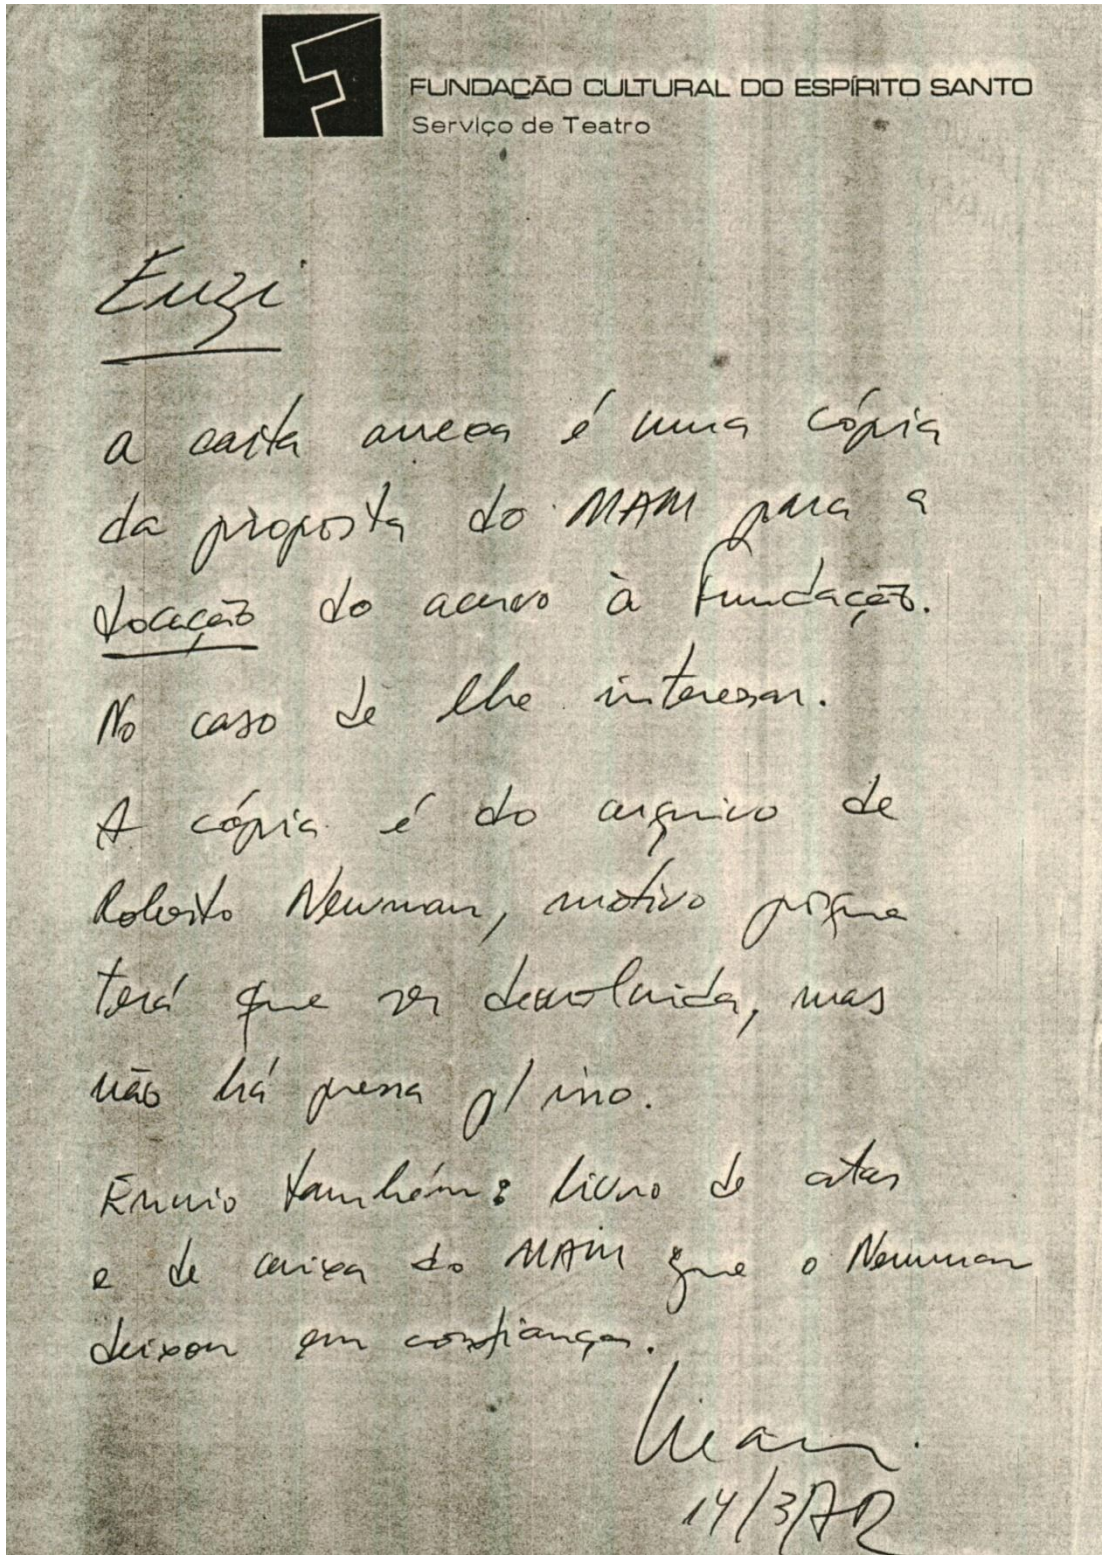 FUNDAÇÃO CULTURAL DO ESPÍRITO SANTO
Serviço de Teatro
Euzi
a carta anexa é uma cópia
da proposta do MAM para a
do acervo à Fundação.
No caso de lhe interessar.
A cópia é do arquivo de
Roberto Newman, motivo porque
terá que ser devolvida, mas
não há pressa p/ isso.
Envio também: livro de atas
e de caixa do MAM que o Newman
deixou em confiança.
14/3/